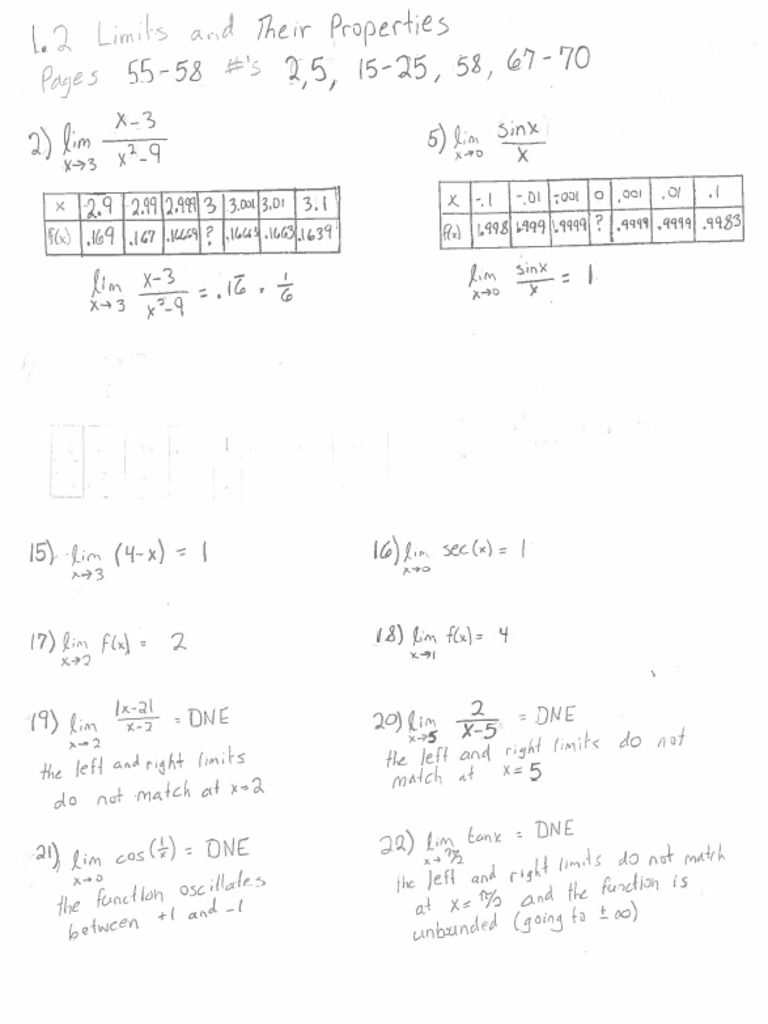 1.2 Limits and Their Properties
Pages 55-58 #'s 2,5, 15-25, 58, 67-70
2) lim x→3 x-3 / x²-9
x -2.9 2.99 2.999 3 3.001 3.01 3.1
f(x) .169 .167 .16669 ? .16663 .1663 .1639
lim x→3 x-3 / x²-9 = .16̅ = 1/6
5) lim x→0 sinx / x
x -.1 -.01 -.001 0 .001 .01 .1
f(x) .9999 .9999 .9983
lim x→0 sinx / x = 1
15) lim x→3 (4-x) = 1
16) lim x→0 sec(x) = 1
17) lim x→2 f(x) = 2
18) lim x→1 f(x) = 4
19) lim x→2 |x-2| / x-2 = DNE
the left and right limits
do not match at x=2
20) lim x→5 2 / x-5 = DNE
the left and right limits do not
match at x=5
21) lim x→0 cos(1/x) = DNE
the function oscillates
between +1 and -1
22) lim x→π/2 tanx = DNE
the left and right limits do not match
at x=π/2 and the function is
unbounded (going to ±∞)